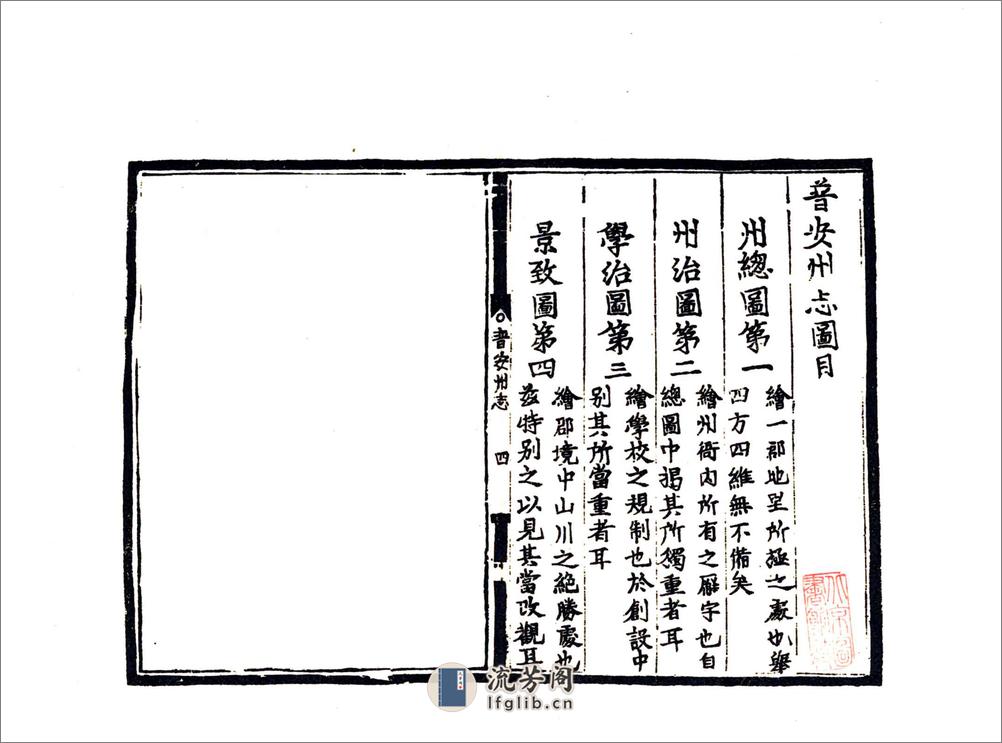 普安州志圖目
州總圖第一
繪一郡地里所極之處也舉
四方四維無不備矣
州治圖第二
繪州衙內所有之廨宇也自
總圖中揭其所獨重者耳
學治圖第三
繪學校之規制也於創設中
別其所當重者耳
景致圖第四
繪郡境中山川之絕勝處也
茲特別之以見其當改觀耳
普安州志
四
流芳阁
lfglib.cn